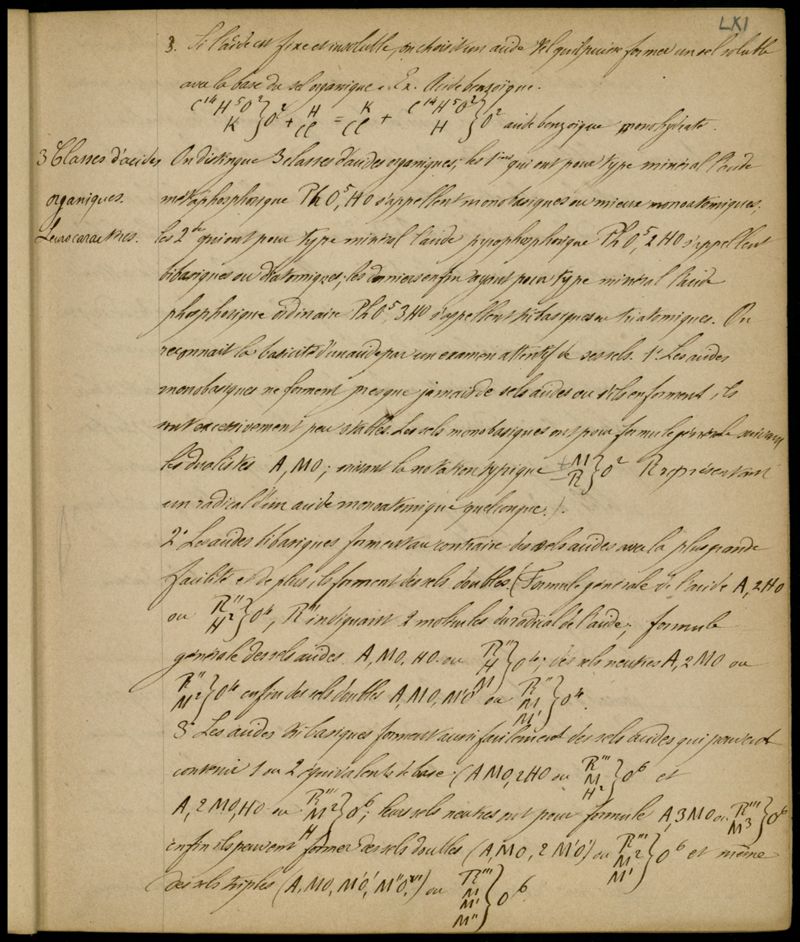 LXI
3. Si l'acide est fixe et insoluble, on choisit un acide tel qu'il puisse former un sel soluble
avec la base du sel organique. Ex. Acide benzoïque.
C¹⁴H⁵O² K } O² + H Cl = K Cl + C¹⁴H⁵O² H } O² acide benzoïque monohydraté.
3 Classes d'acides
organiques.
Leurs caractères.
On distingue 3 classes d'acides organiques; les 1ers qui ont pour type minéral l'acide
métaphosphorique PhO⁵, HO s'appellent monobasiques ou mieux monoatomiques;
les 2ds qui ont pour type minéral l'acide pyrophosphorique PhO⁵, 2HO s'appellent
bibasiques ou diatomiques; les derniers enfin ayant pour type minéral l'acide
phosphorique ordinaire PhO⁵, 3HO s'appellent tribasiques ou triatomiques. On
reconnait la basicité d'un acide par un examen attentif de ses sels. 1° Les acides
monobasiques ne forment presque jamais de sels acides ou s'ils en forment, ils
sont excessivement peu stables. Les sels monobasiques ont pour formule générale suivant
les dualistes A, MO; suivant la notation typique M R } O² R représentant
un radical d'un acide monoatomique quelconque.
2° Les acides bibasiques forment au contraire des sels acides avec la plus grande
facilité et de plus ils forment des sels doubles. (Formule générale de l'acide A, 2HO
ou R'' H² } O⁴, R'' indiquant 2 molécules du radical de l'acide; formule
générale des sels acides A, MO, HO ou R'' H M } O⁴; des sels neutres A, 2MO ou
R'' M² } O⁴ enfin des sels doubles A, MO, M'O ou R'' M M' } O⁴.
3° Les acides tribasiques forment aussi facilement des sels acides qui peuvent
contenir 1 ou 2 équivalents de base (A MO, 2HO ou R''' M H² } O⁶ et
A, 2MO, HO ou R''' M² H } O⁶; leurs sels neutres ont pour formule A, 3MO ou R''' M³ } O⁶
enfin ils peuvent former des sels doubles (A, MO, 2M'O) ou R''' M² M' } O⁶ et même
des sels triples (A, MO, M'O, M''O,) ou R''' M M' M'' } O⁶.